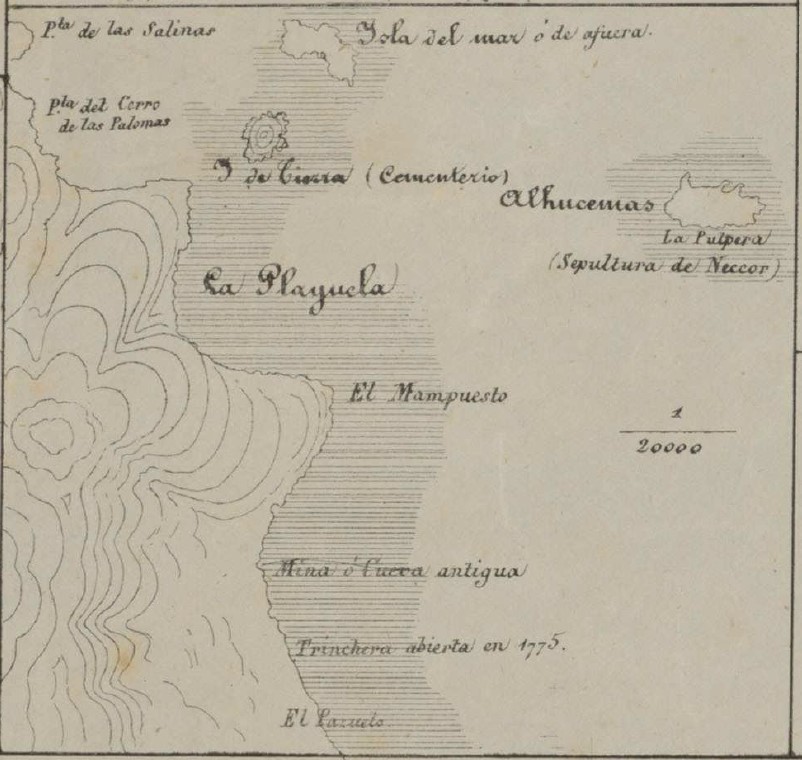 Pta de las Salinas
Isla del mar ó de afuera.
Pta del Cerro
de las Palomas
I de Tierra (Cementerio)
Alhucemas
La Pulpera
(Sepultura de Neccor)
La Playuela
El Mampuesto
1
20000
Mina ó Cueva antigua
Trinchera abierta en 1775.
El